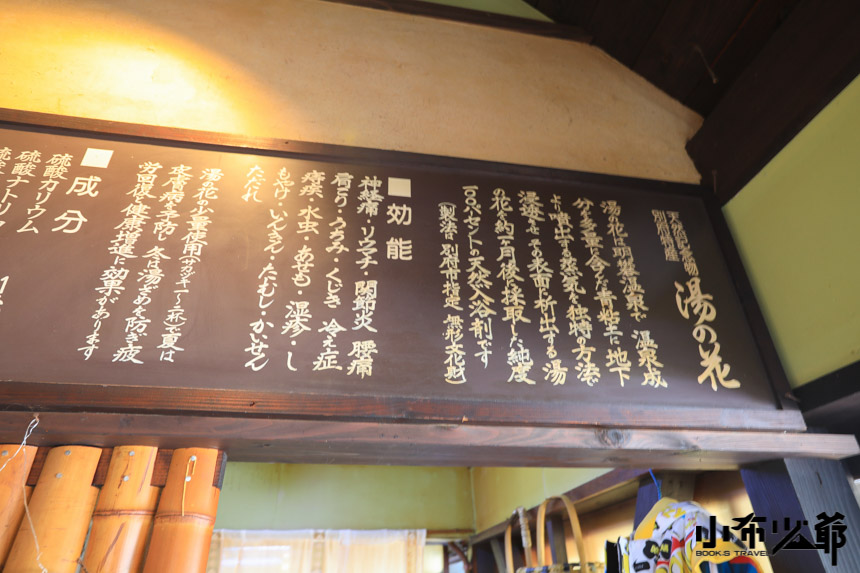 天然記念物
別府特産
湯の花
湯の花は明礬温泉で 温泉成
分を多量に含んだ青粘土に地下
より噴出する蒸気を独特の方法で
浸透させその表面に析出する湯
の花を約一ヶ月後に採取した純度
一〇〇パーセントの天然入浴剤です
(製法は別府市指定 無形文化財)
■効能
神経痛・リウマチ・関節炎 腰痛
肩こり・うちみ・くじき 冷え症
痔疾・水虫・あせも・湿疹・し
もやけ・いんきん・たむし・かいせん
ただれ
湯の花の少量使用(ウイスキー一杯)で夏は
皮膚病を予防し 冬は湯ざめを防ぎ疲
労回復と健康増進に効果があります
■成分
硫酸カリウム
硫酸ナトリウ
小布少爺
BOOK'S TRAVEL